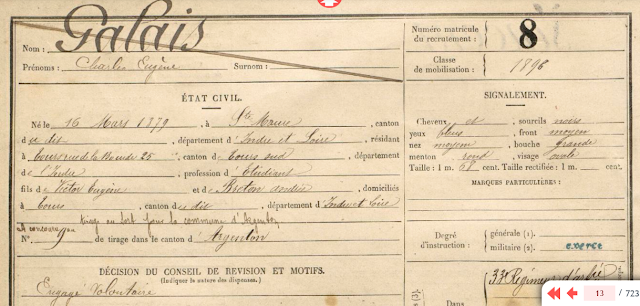 Galais
Nom :
Prénoms : Charles Eugène Surnom :
Numéro matricule
du recrutement : 8
Classe
de mobilisation : 1896
ÉTAT CIVIL.
Né le 16 Mars 1879, à Ste Maure, canton
d u dit, département d'Indre et Loire, résidant
à Tours rue de la 25, canton de Tours sud, département
de l'Indre, profession d'Etudiant
fils de Victor Eugène et de Breton, domiciliés
à Tours, canton du dit, département d'Indre et Loire
tirage au sort pour la commune d'Argenton
N° 9 de tirage dans le canton d'Argenton
DÉCISION DU CONSEIL DE RÉVISION ET MOTIFS.
(Indiquer la nature des dispenses.)
Engagé Volontaire
SIGNALEMENT.
Cheveux et, sourcils noirs
yeux bleus, front moyen
nez moyen, bouche grande
menton rond, visage ovale
Taille : 1 m. 68 cent. Taille rectifiée : 1 m. cent.
MARQUES PARTICULIÈRES :
Degré
d'instruction :
générale (1).
militaire (2). exercé
33e Régiment d'art
Dans
13 / 723